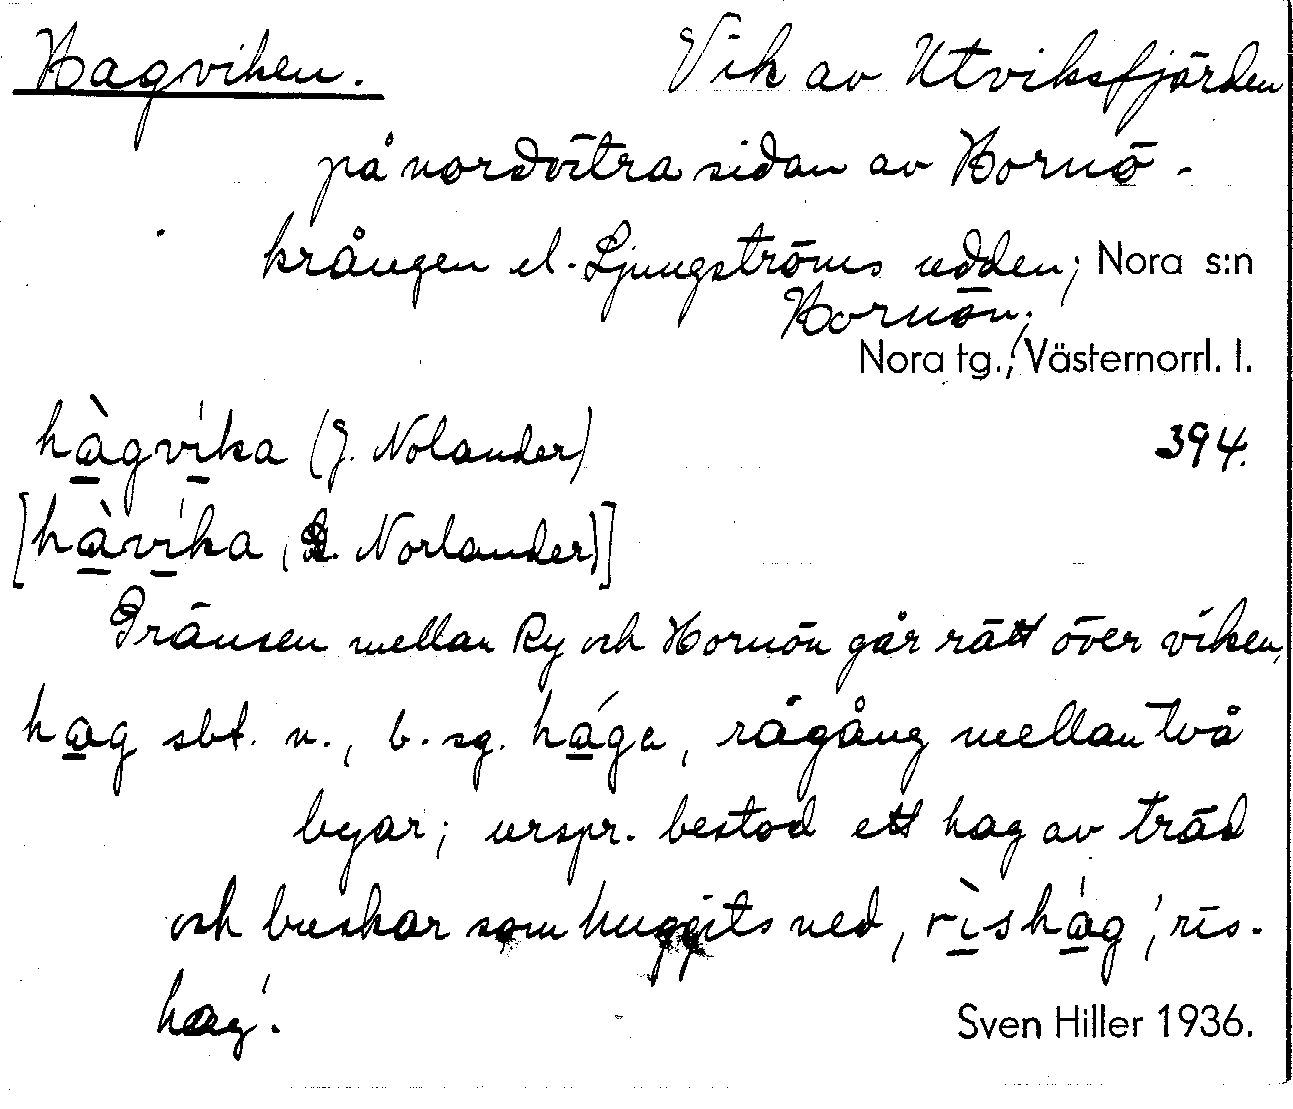 Hagviken. Vik av Utviksfjärden
på nordvästra sidan av Hornö-
krången el. Ljungströms udden; Nora s:n
Hornön;
Nora tg., Västernorrl. l.
hàgvíka (J. Nolander) 394.
[hàvíka ( . Norlander)]
Gränsen mellan Ry och Hornön går rätt över viken,
hag sbt. n., b. sg. hága, rågång mellan två
byar; urspr. bestod ett hag av träd
och buskar som huggits ned, rìshág, 'ris-
hag'.
Sven Hiller 1936.